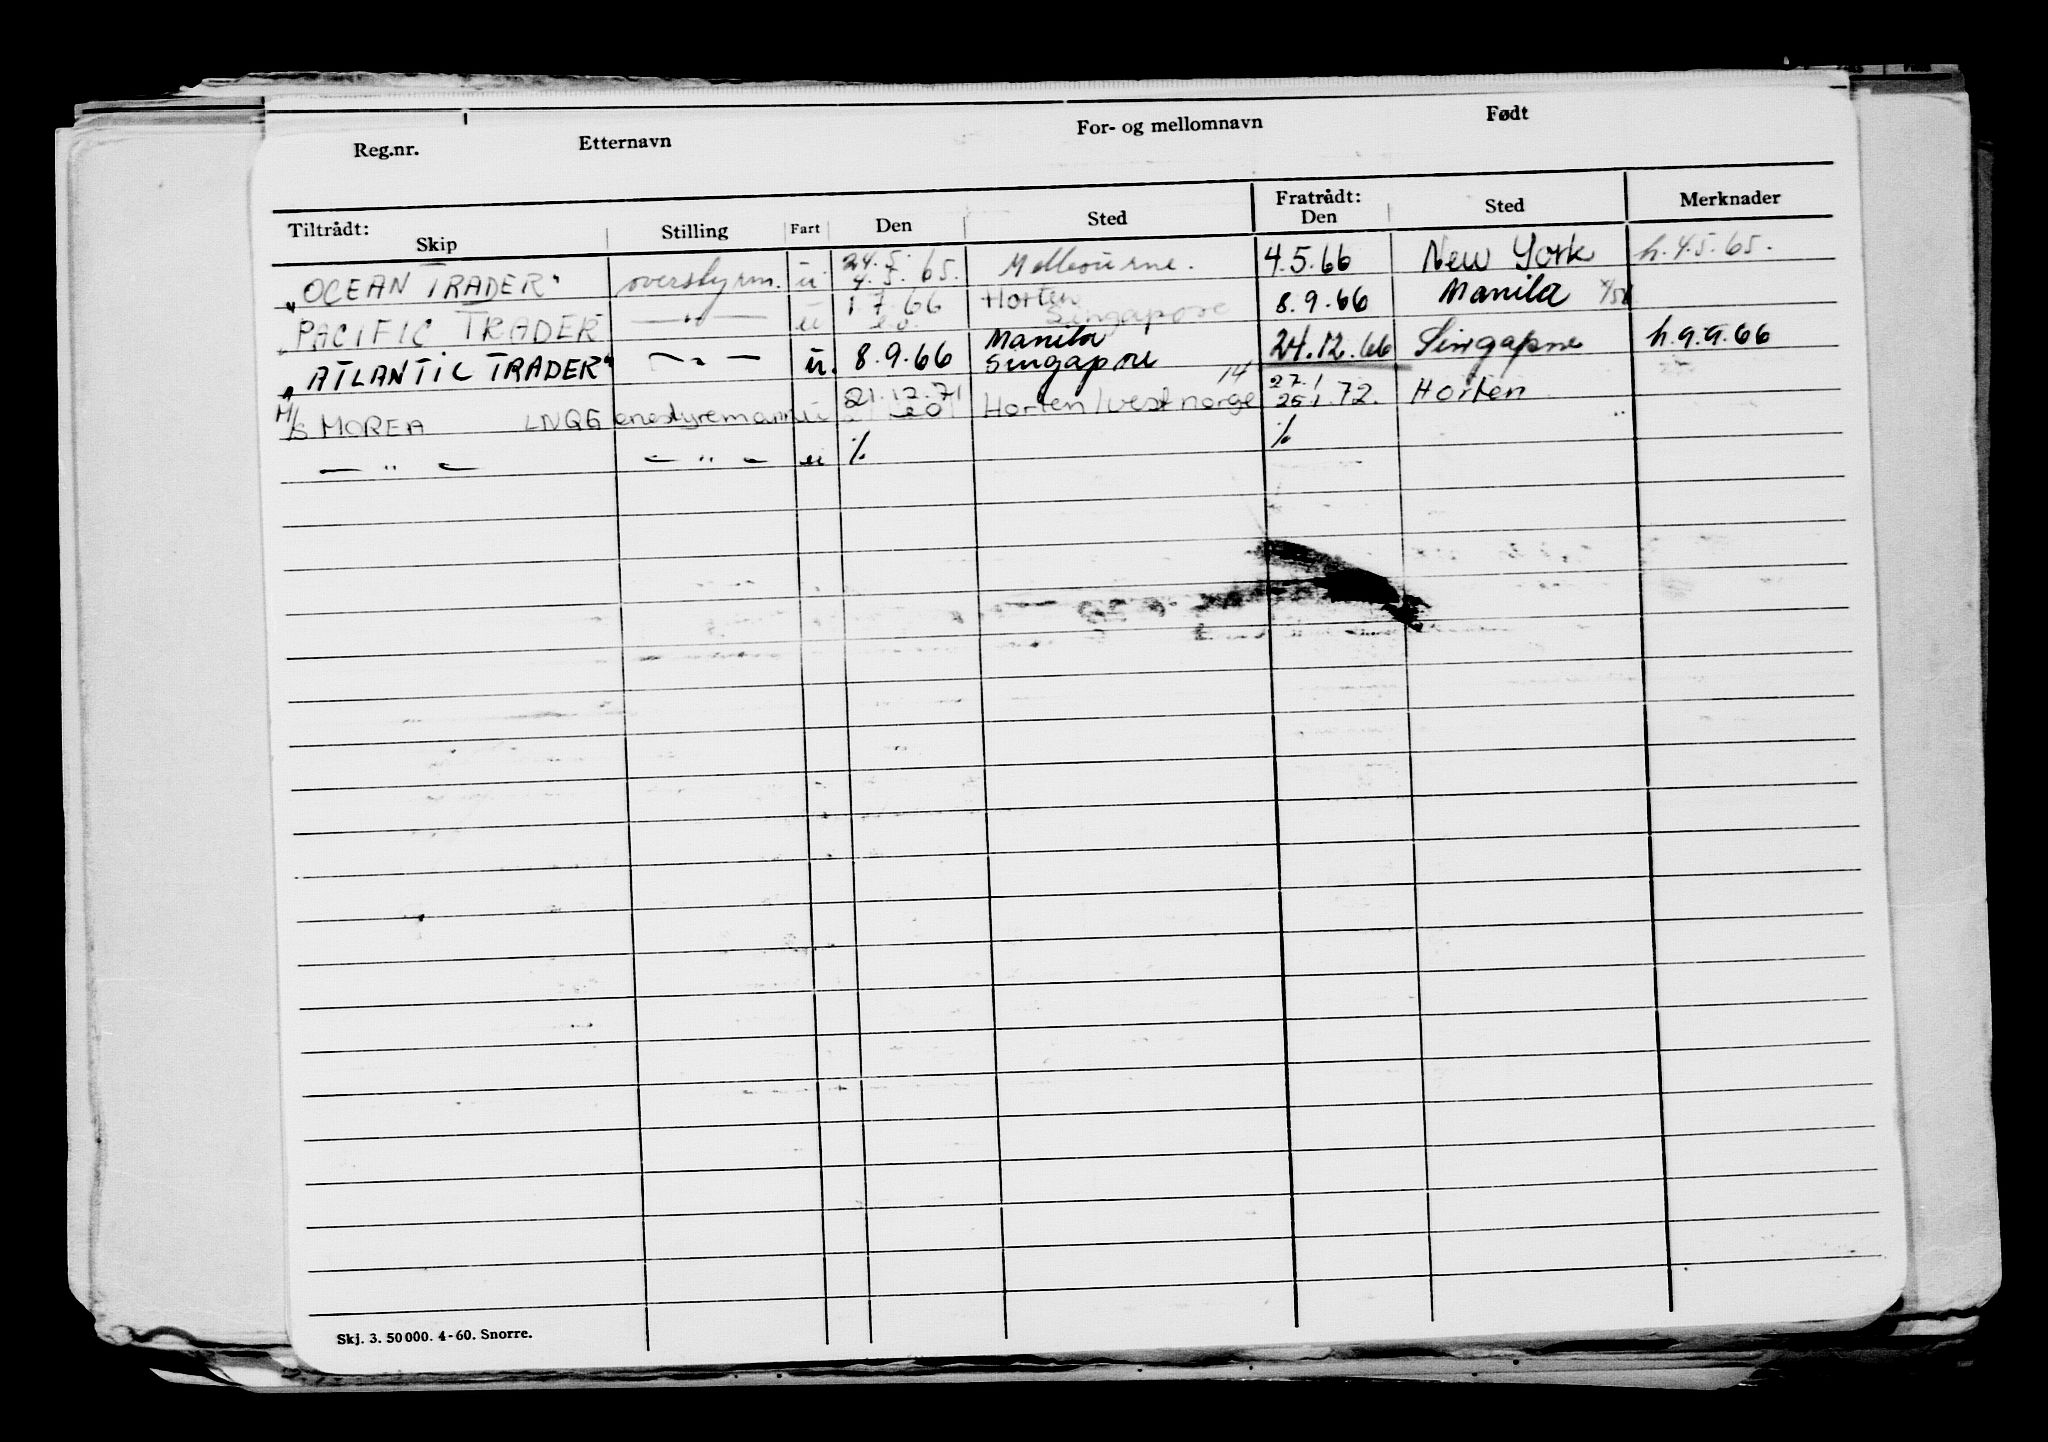 Reg.nr. Etternavn For- og mellomnavn Født
Tiltrådt: Skip Stilling Fart Den Sted Fratrådt: Den Sted Merknader
"OCEAN TRADER" overstyrm. u 24.5. 4.5.65. Melbourne. 4.5.66 New York h. 4.5.65.
"PACIFIC TRADER — " — u 1.7.66 Horten Singapore 8.9.66 Manila
"ATLANTIC TRADER" — " — u. 8.9.66 Manila Singapore 24.12.66 Singapore h. 9.9.66
M/S MOREA LNQG enestyremann u 21.12.71 Horten/vest norge 14 27.1 25.1.72. Horten
— " — — " — u % %
Skj. 3. 50 000. 4-60. Snorre.